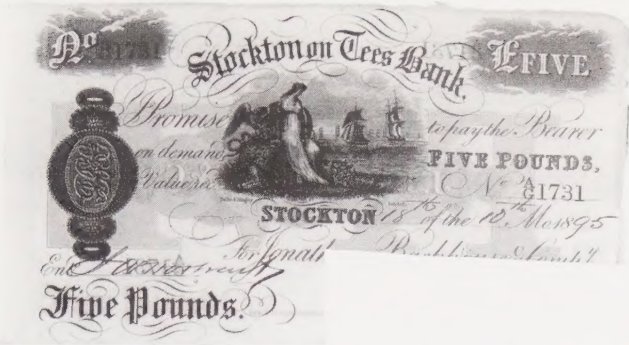 No. 31731 £FIVE
Stockton on Tees Bank.
Promise to pay the Bearer
on demand FIVE POUNDS,
Value rec No A/G 1731
STOCKTON 18th of the 10th Mo 1895
For Jonath Backhouse & Comp.y
Ent
Five Pounds.